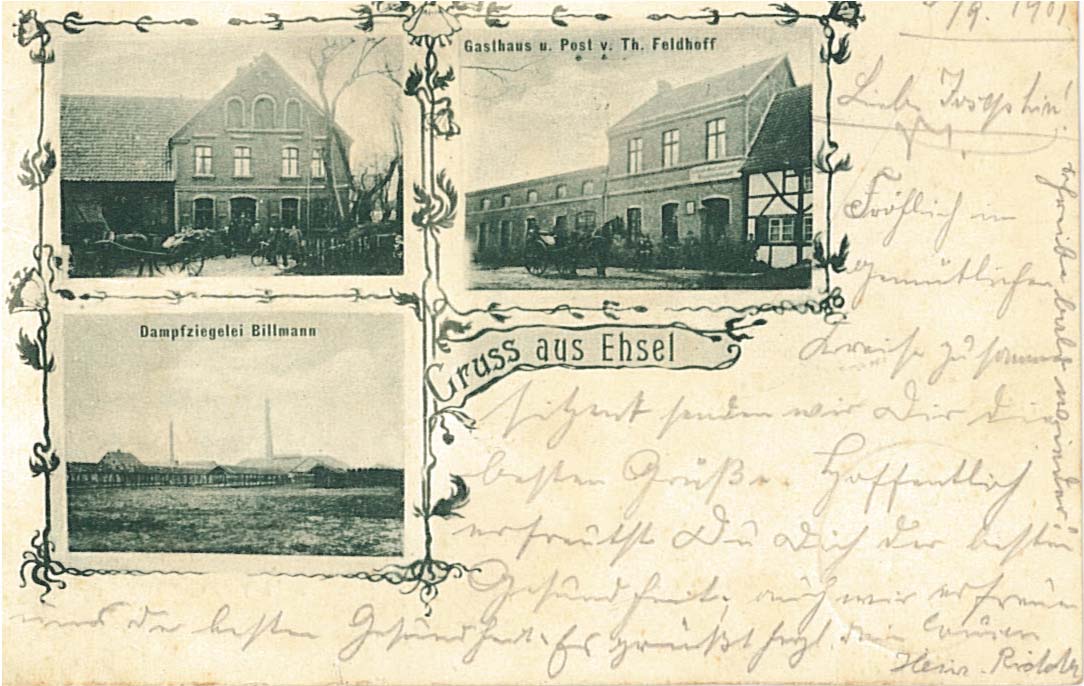 Gasthaus u. Post v. Th. Feldhoff
Dampfziegelei Billmann
Gruss aus Ehsel
/9. 1901
Liebe Josephin!
Fröhlich im
gemütlichen
Kreise zusammen
sitzent senden wir Dir die
besten Grüße. Hoffentlich
erfreutst Du Dich der besten
Gesundheit, auch wir erfreuen
uns der besten Gesundheit. Es grüßt herzl. dein Cousin
Heinr. Ridder
schreibe bald wieder